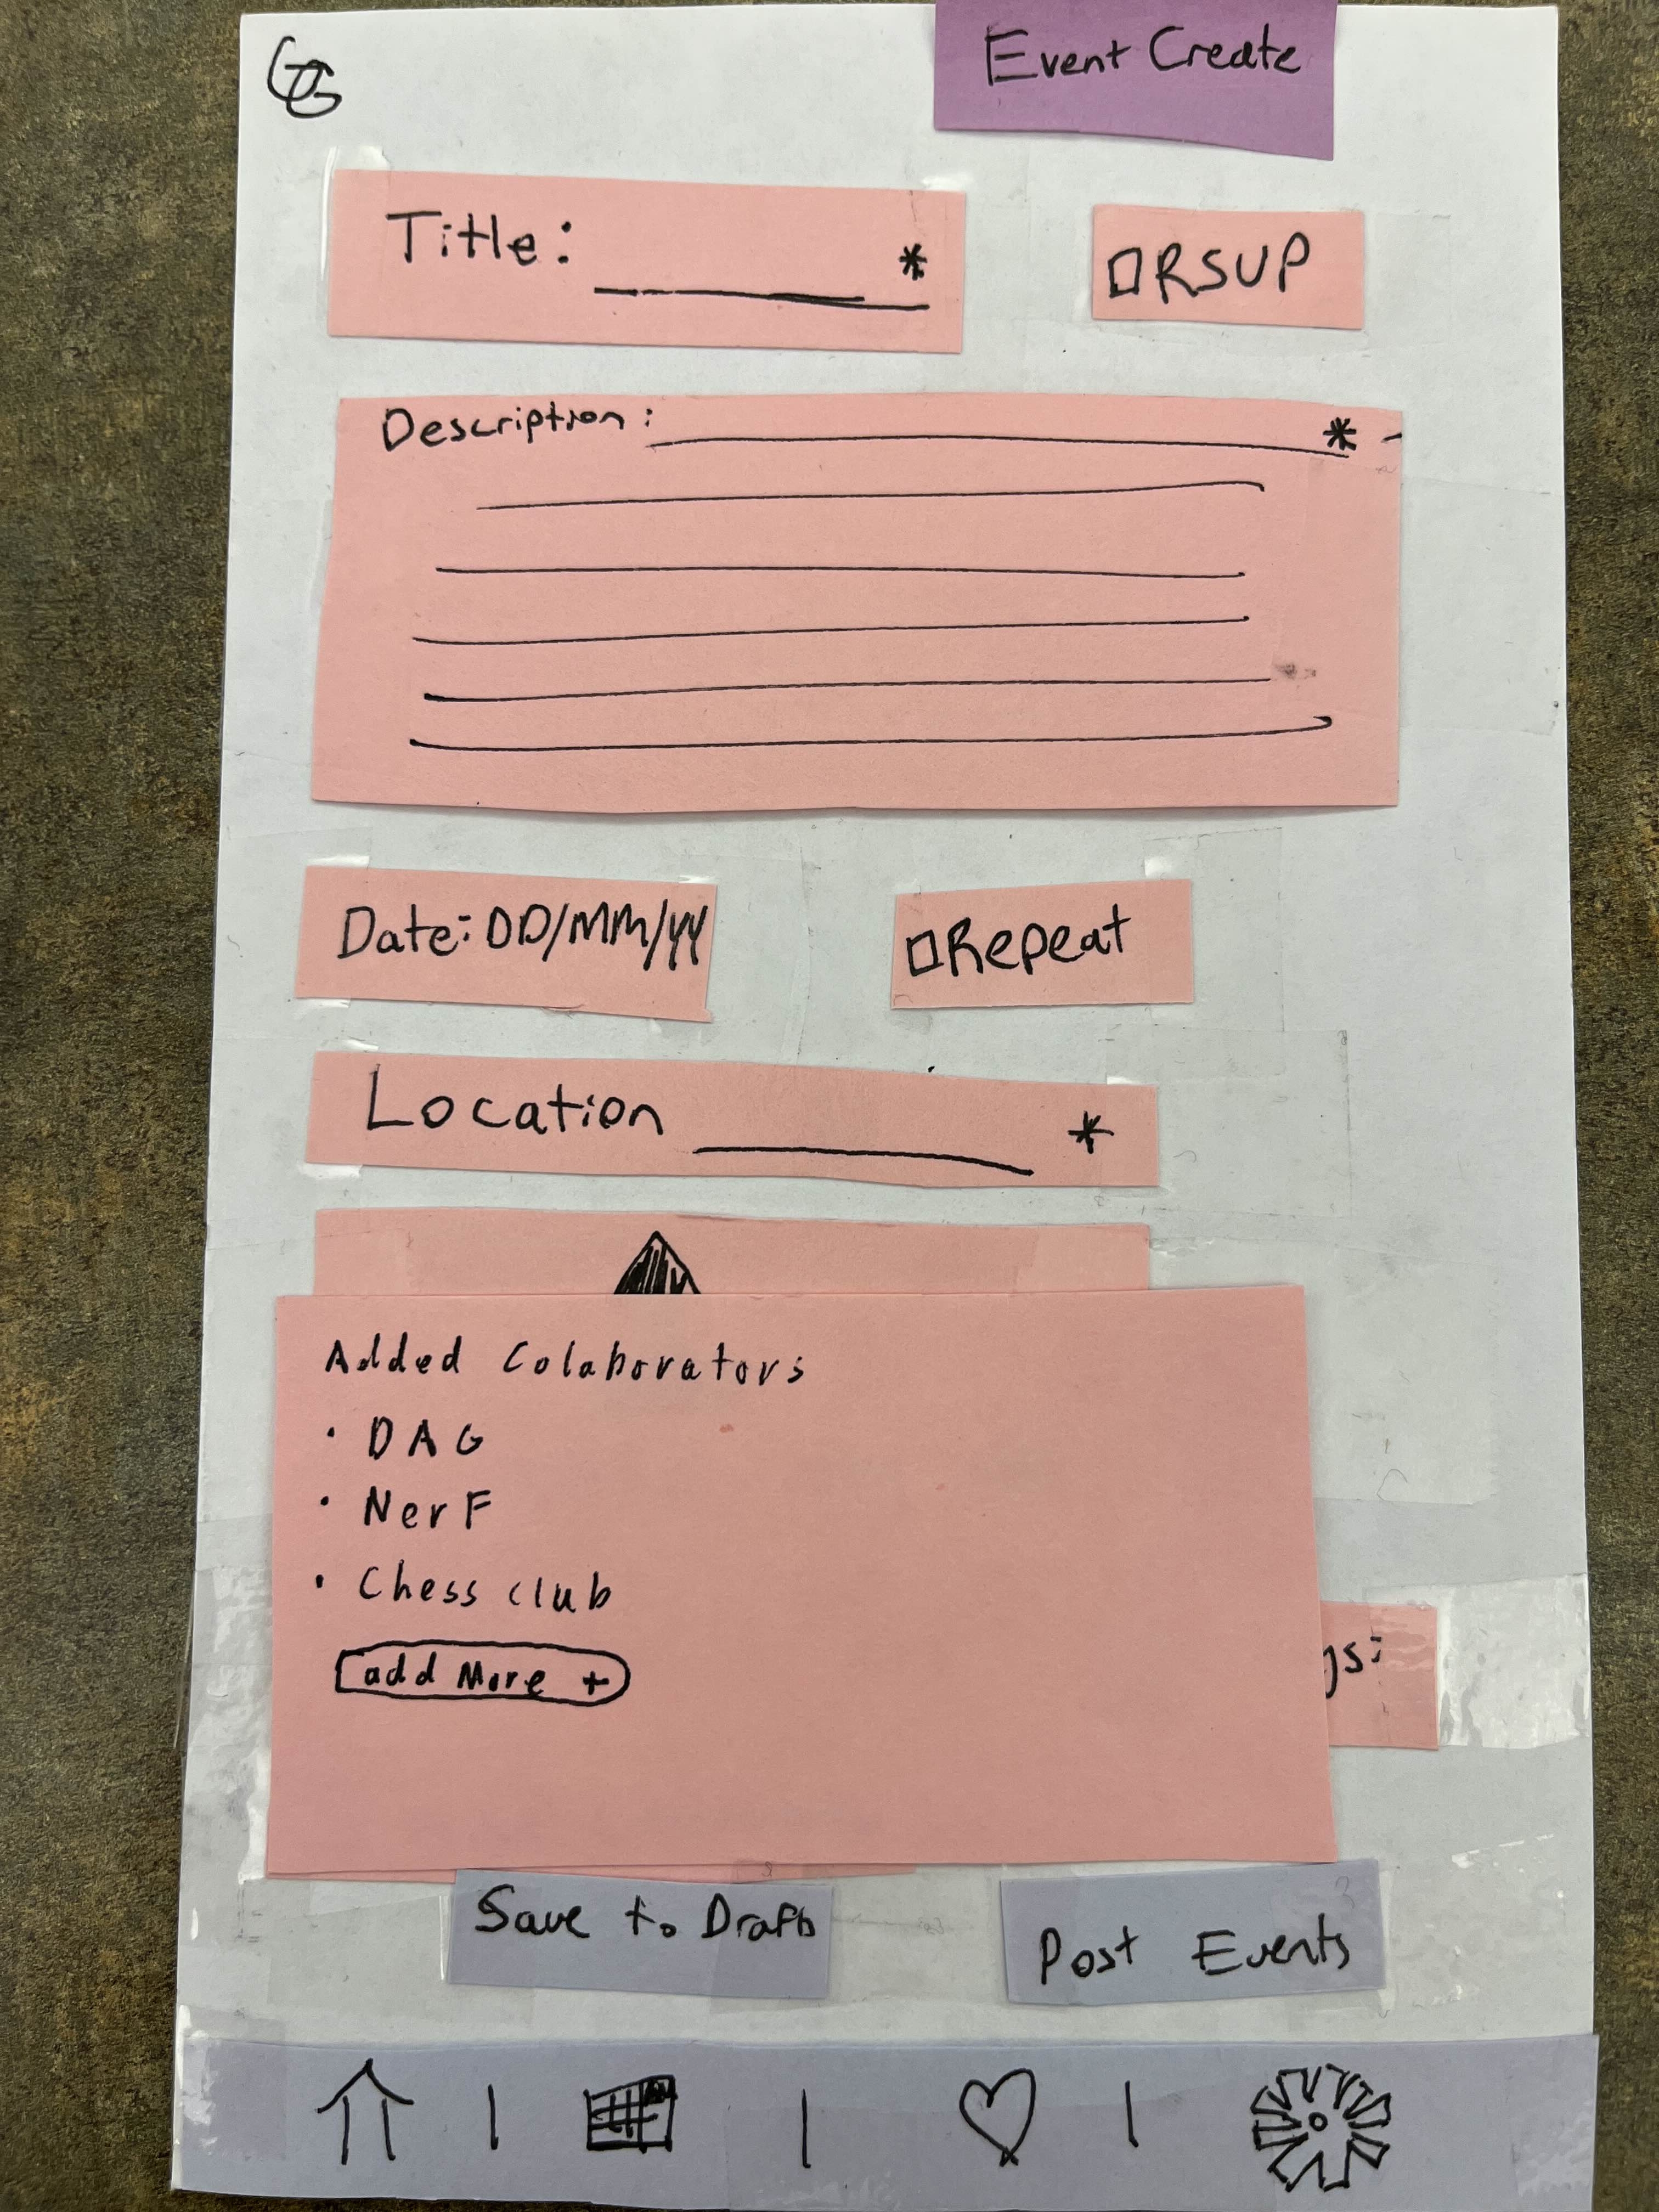 Event Create
Title: *
RSVP
Description: *
Date: DD/MM/YY
Repeat
Location *
Added Colaborators
• DAG
• NerF
• Chess club
add More +
gs:
Save to Drafts
Post Events